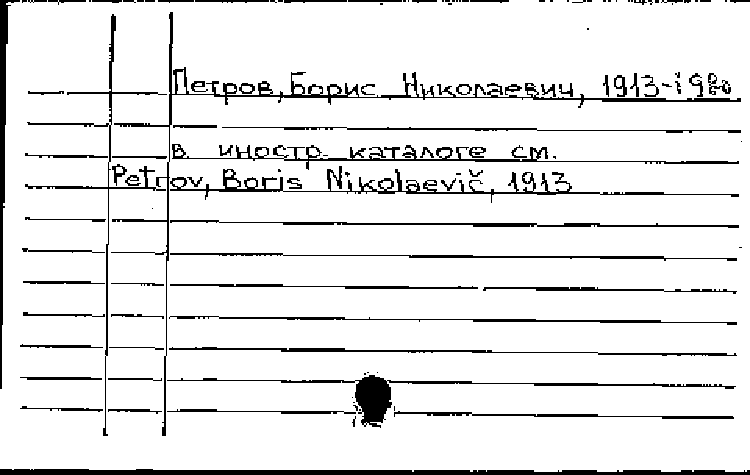 Петров, Борис Николаевич, 1913-1980
в иностр. каталоге см.
Petrov, Boris Nikolaevič, 1913